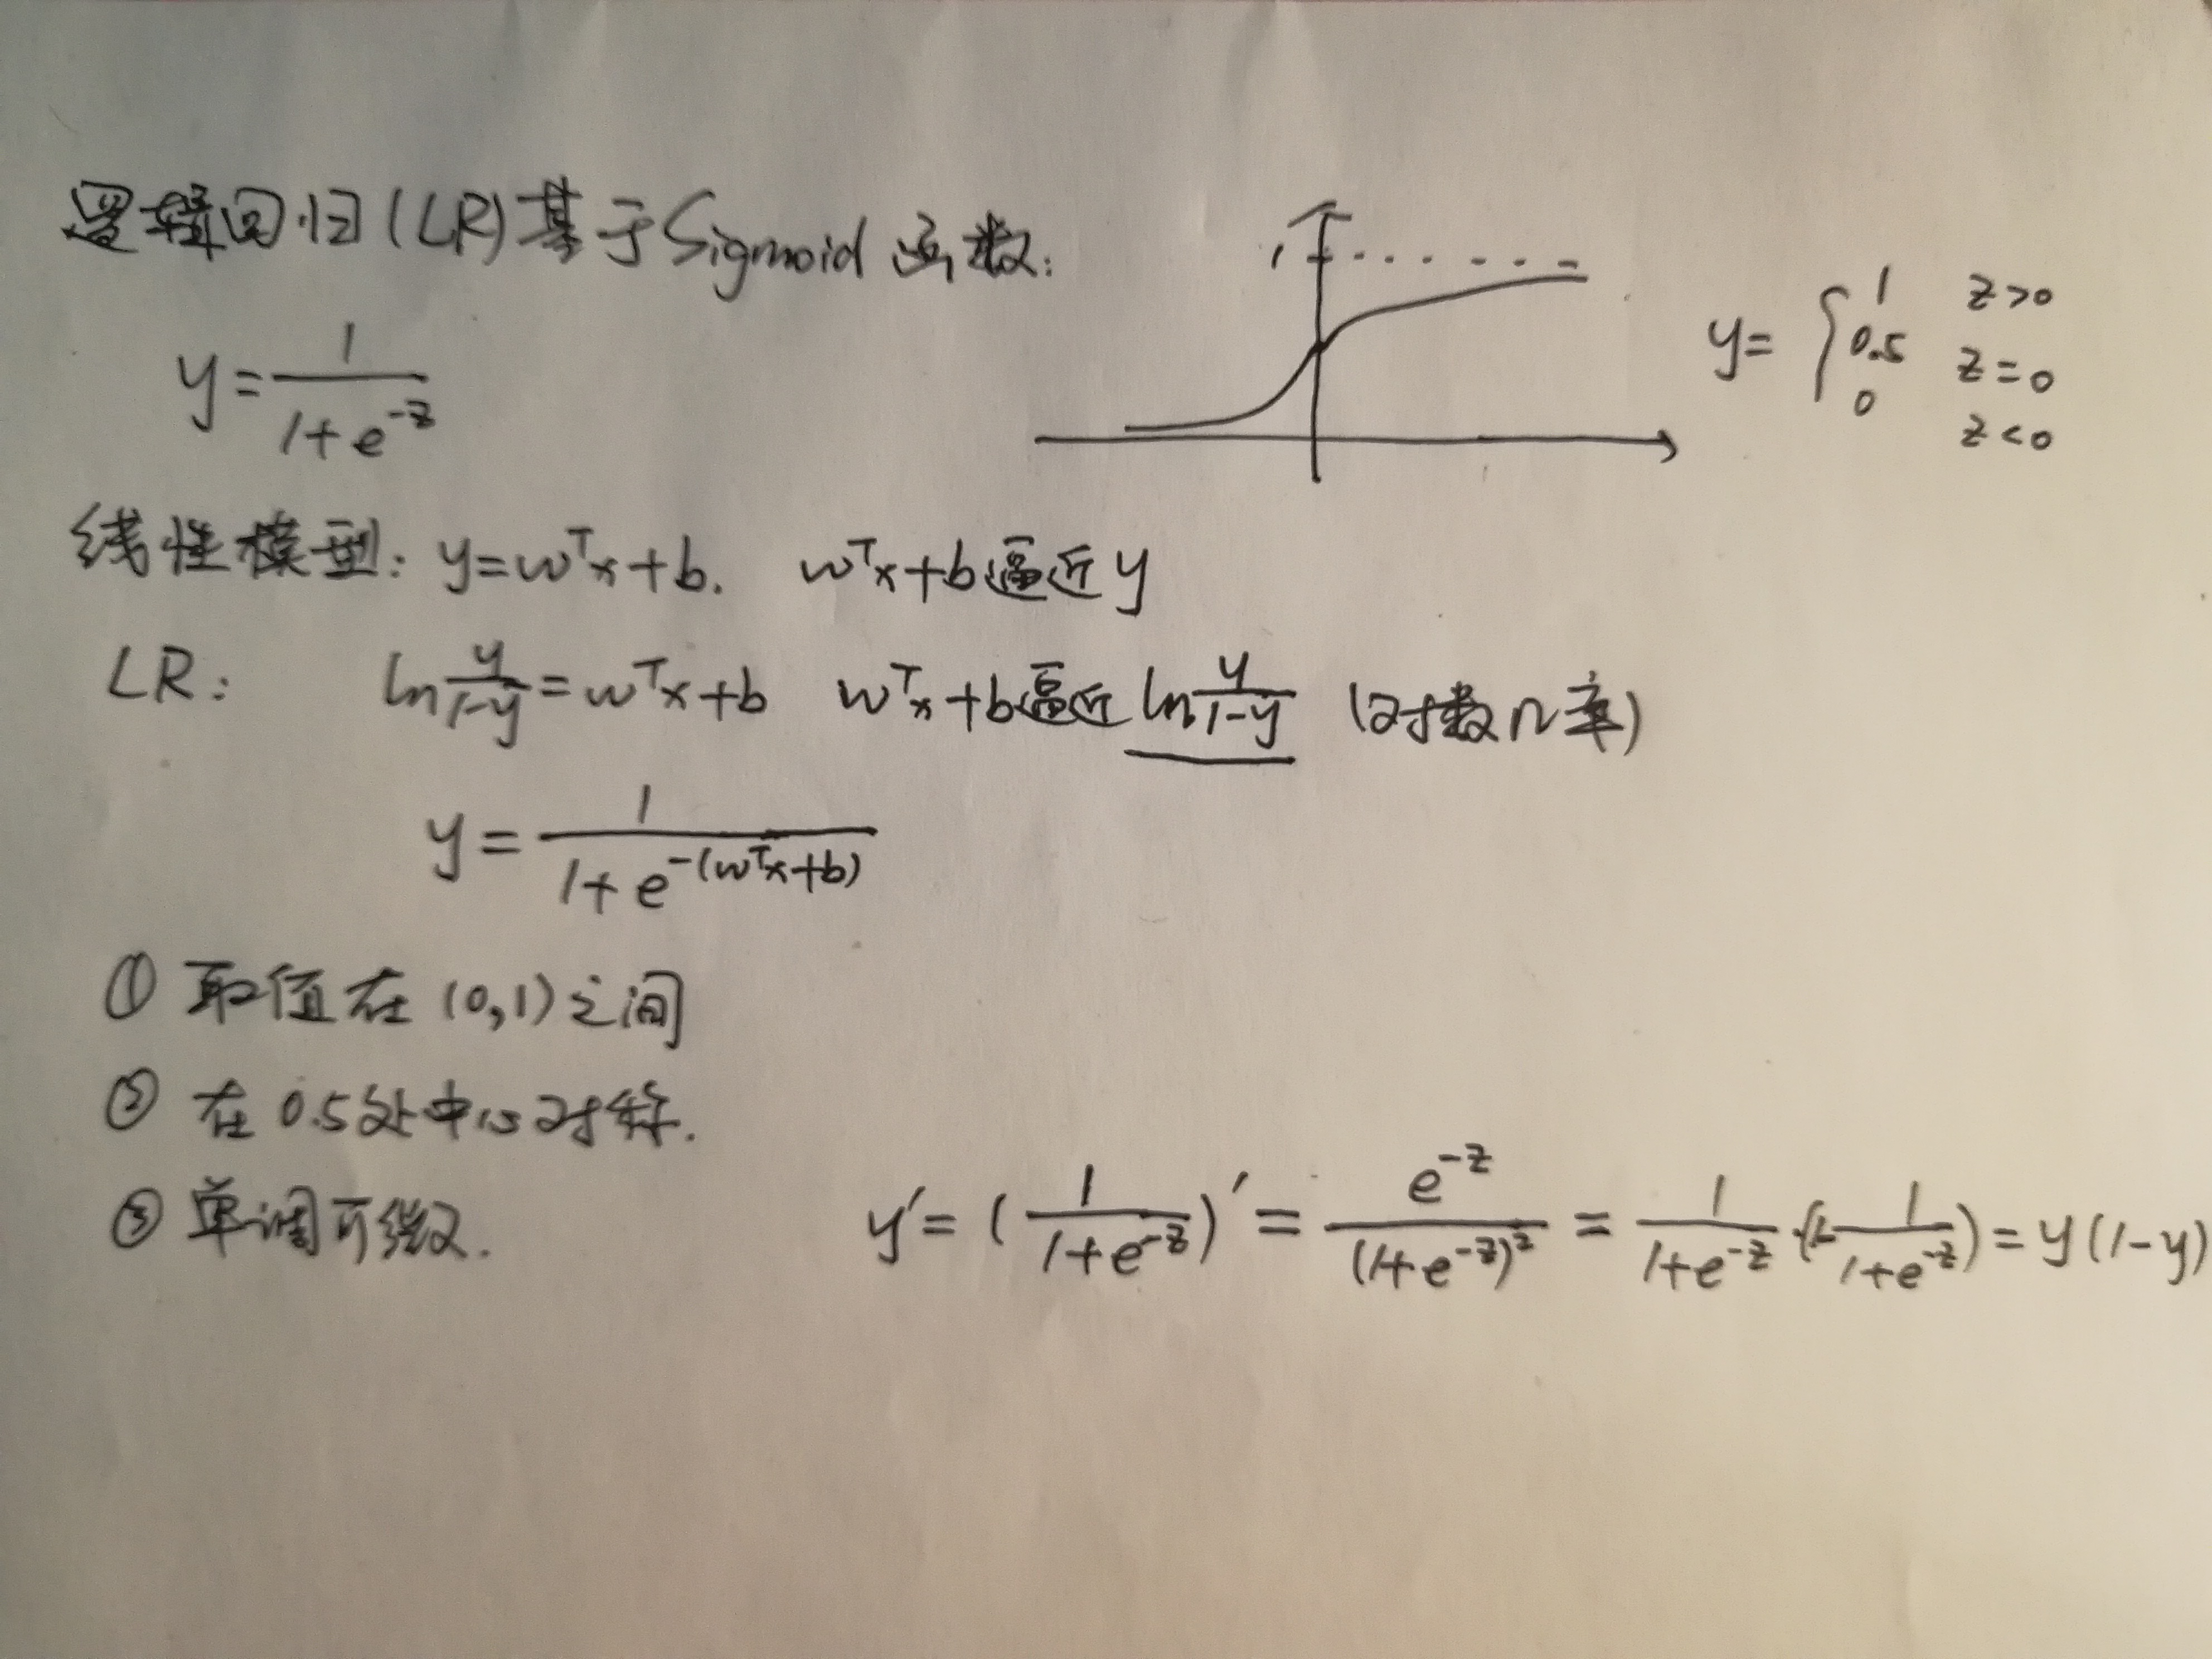 逻辑回归(LR)基于Sigmoid 函数:
y = 1/(1+e^{-z})
1
y = { 1 z>0
0.5 z=0
0 z<0
线性模型: y=w^T x+b. w^T x+b逼近y
LR: ln y/(1-y) = w^T x+b w^T x+b逼近 ln y/(1-y) (对数几率)
y = 1/(1+e^{-(w^T x+b)})
① 取值在(0,1)之间
② 在0.5处中心对称.
③ 单调可微.
y' = (1/(1+e^{-z}))' = e^{-z}/(1+e^{-z})^2 = 1/(1+e^{-z}) (1-1/(1+e^{-z})) = y(1-y)